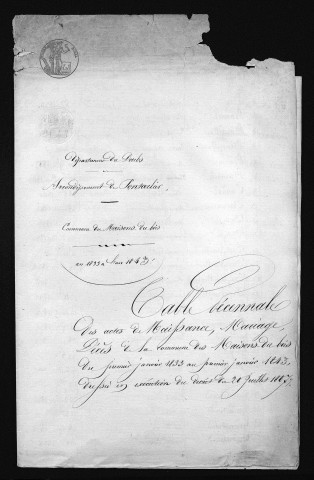 Département du Doubs
Arrondissement de Pontarlier
Commune des Maisons du bois
an 1833 à l'an 1843
Table Décennale
Des actes de Naissance, Mariage,
Décès de la commune des Maisons du bois
du premier janvier 1833 au premier janvier 1843
dressé en exécution du décret du 20 juillet 1807